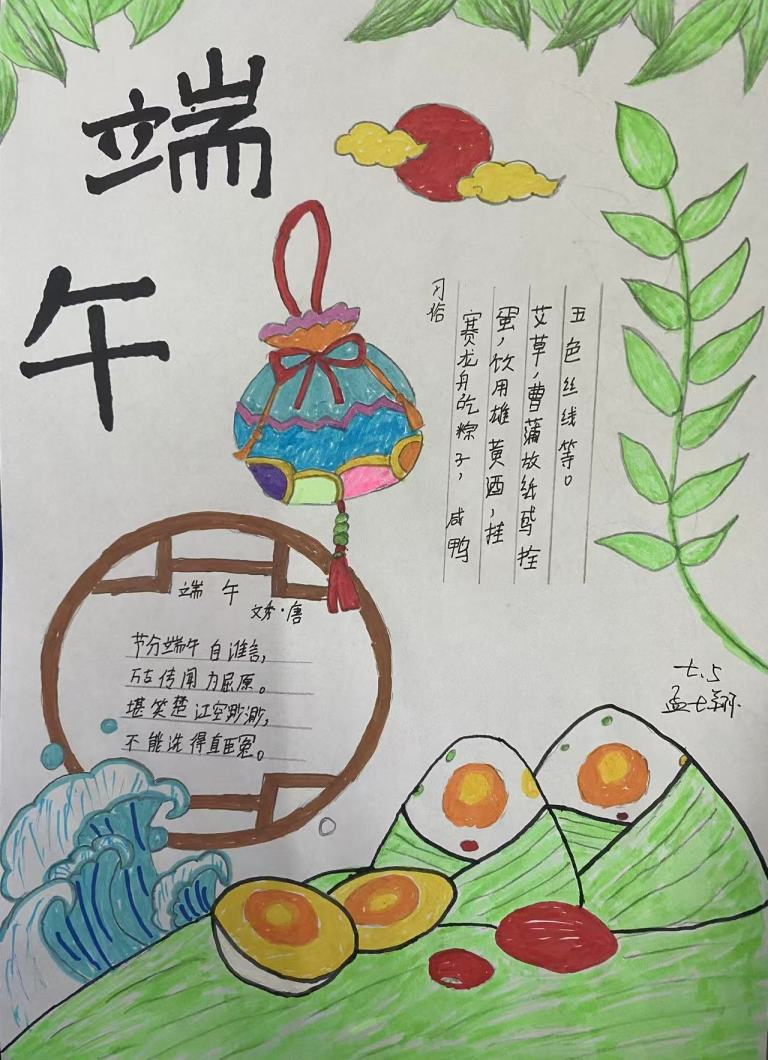 端
午
习俗
赛龙舟吃粽子，咸鸭
蛋，饮用雄黄酒，挂
艾草，曹蒲放纸鸢拴
五色丝线等。
端午
文秀·唐
节分端午自谁言，
万古传闻为屈原。
堪笑楚江空渺渺，
不能洗得直臣冤。
七.5